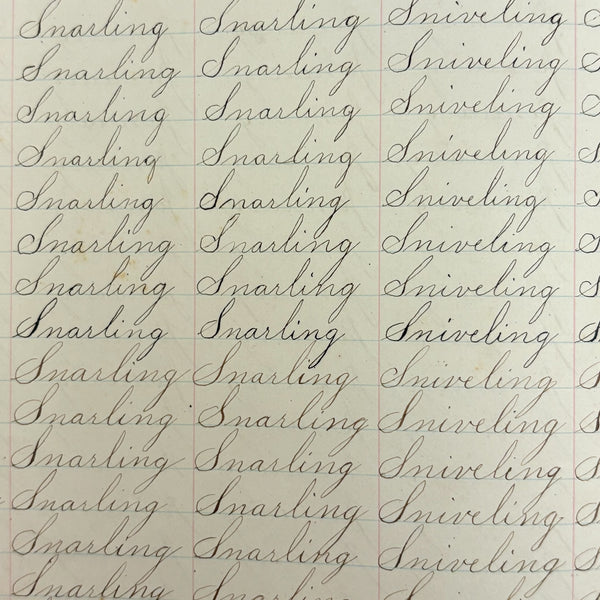 Snarling Snarling Sniveling
Snarling Snarling Sniveling
Snarling Snarling Sniveling
Snarling Snarling Sniveling
Snarling Snarling Sniveling
Snarling Snarling Sniveling
Snarling Snarling Sniveling
Snarling Snarling Sniveling
Snarling Snarling Sniveling
Snarling Snarling Sniveling
Snarling Snarling Sniveling
Snarling Snarling Sniveling
Snarling Snarling Sniveling
Snarling Snarling